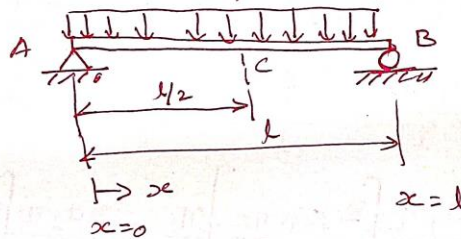 A B
C
l/2
l
x
x=0 x=l